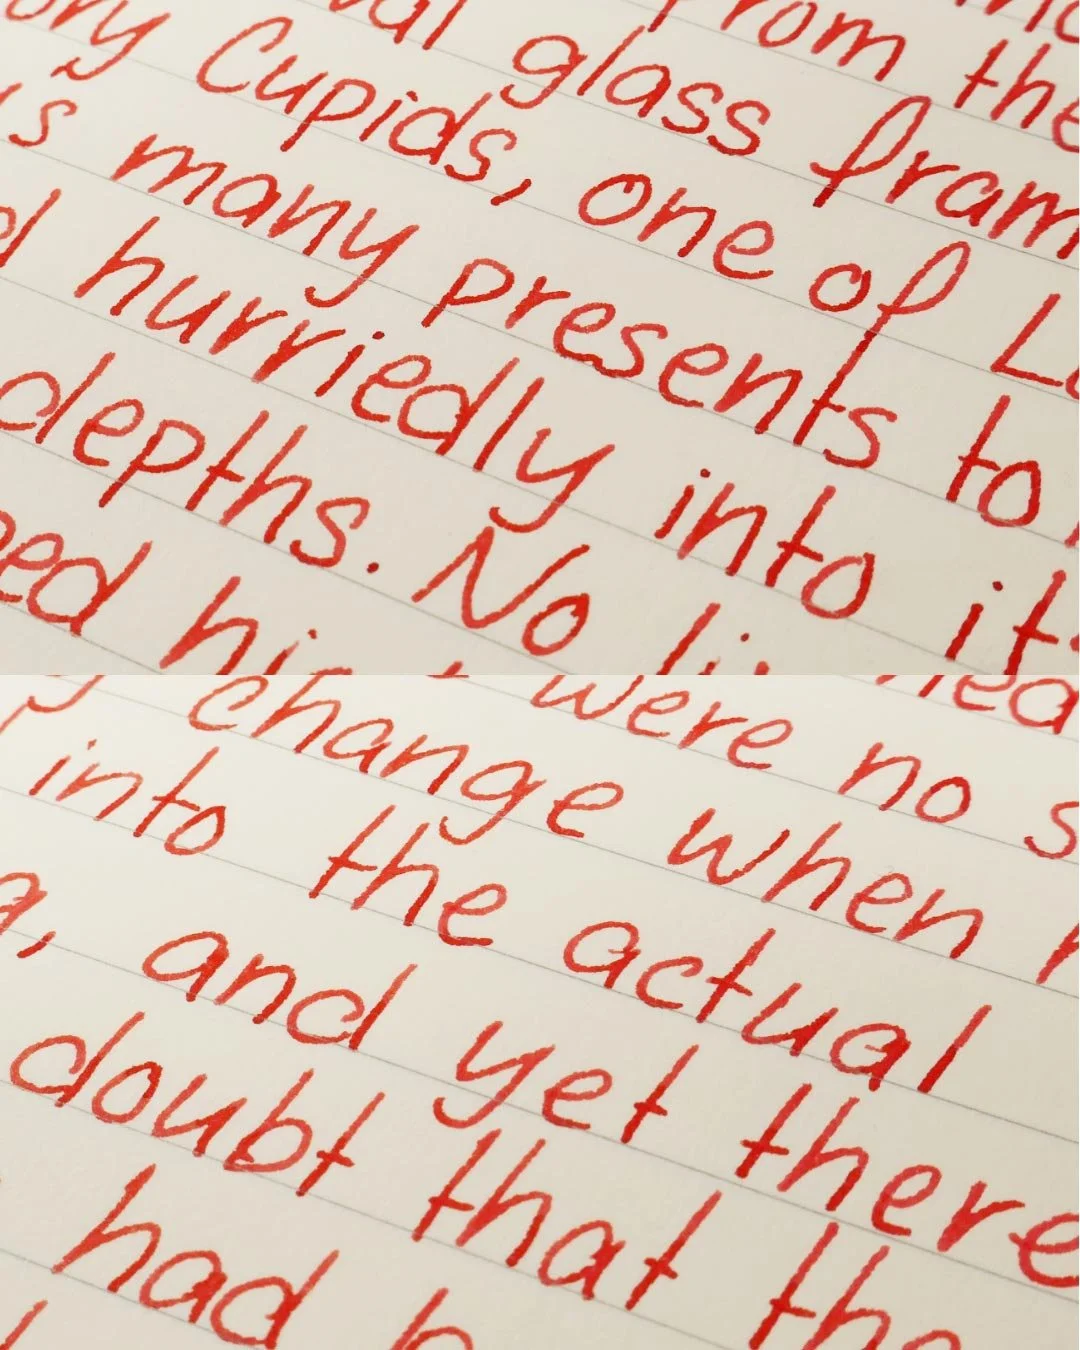 from the
glass
Cupids, one of
many presents to
hurriedly into
depths. No
were no
change when
into the actual
and yet there
doubt that
had